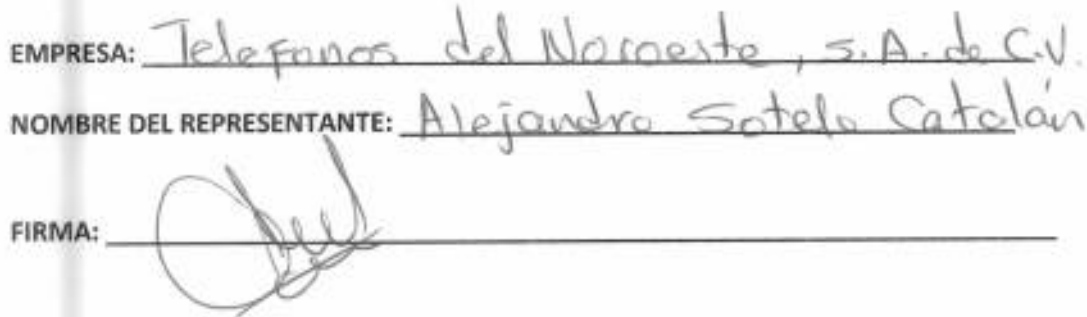 EMPRESA: Telefonos del Noroeste, S.A. de C.V.
NOMBRE DEL REPRESENTANTE: Alejandro Sotelo Catalán
FIRMA: